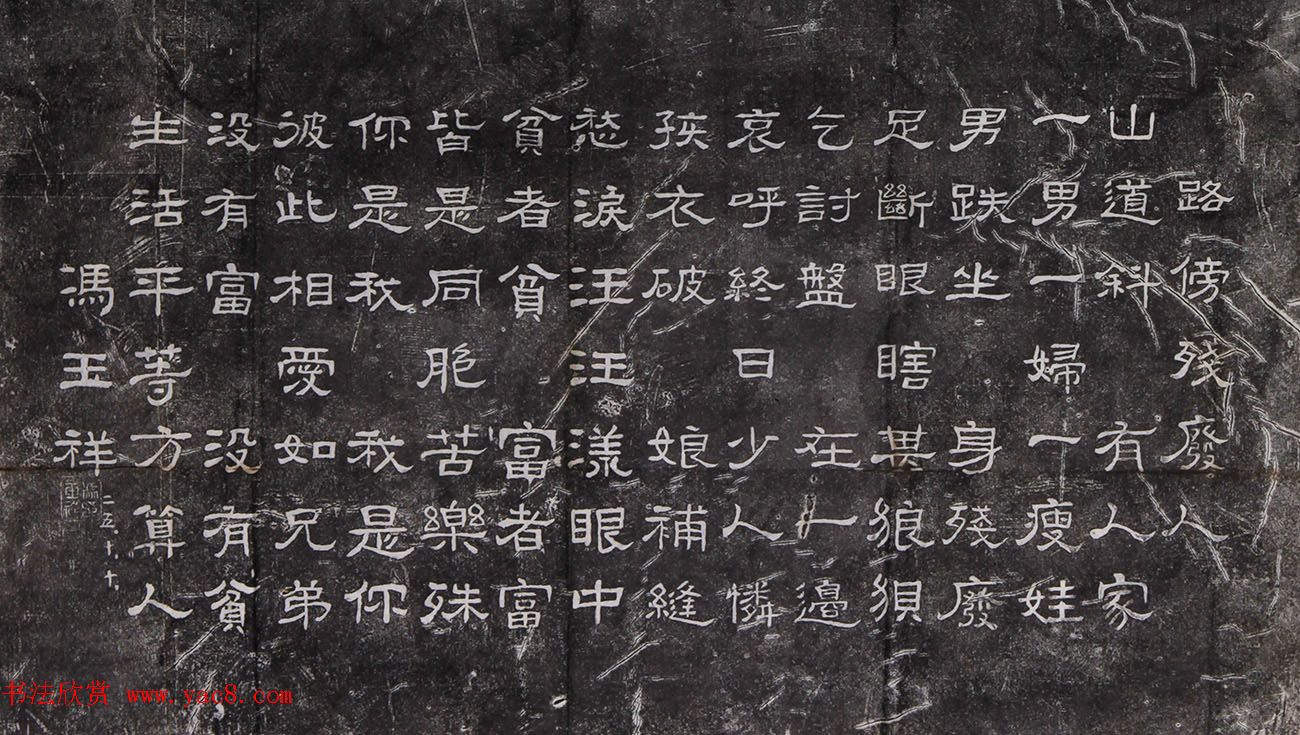 路傍殘廢人
山道斜有人家
一男一婦一瘦娃
男跌坐身殘廢
足斷眼瞎其狼狽
乞討盤在一邊
哀呼終日少人憐
孩衣破娘補縫
愁淚汪汪漾眼中
貧者貧富者富
皆是同胞苦樂殊
你是我我是你
彼此相愛如兄弟
沒有富沒有貧
生活平等方算人
馮玉祥
二五、十、十、
书法欣赏 www.yac8.com